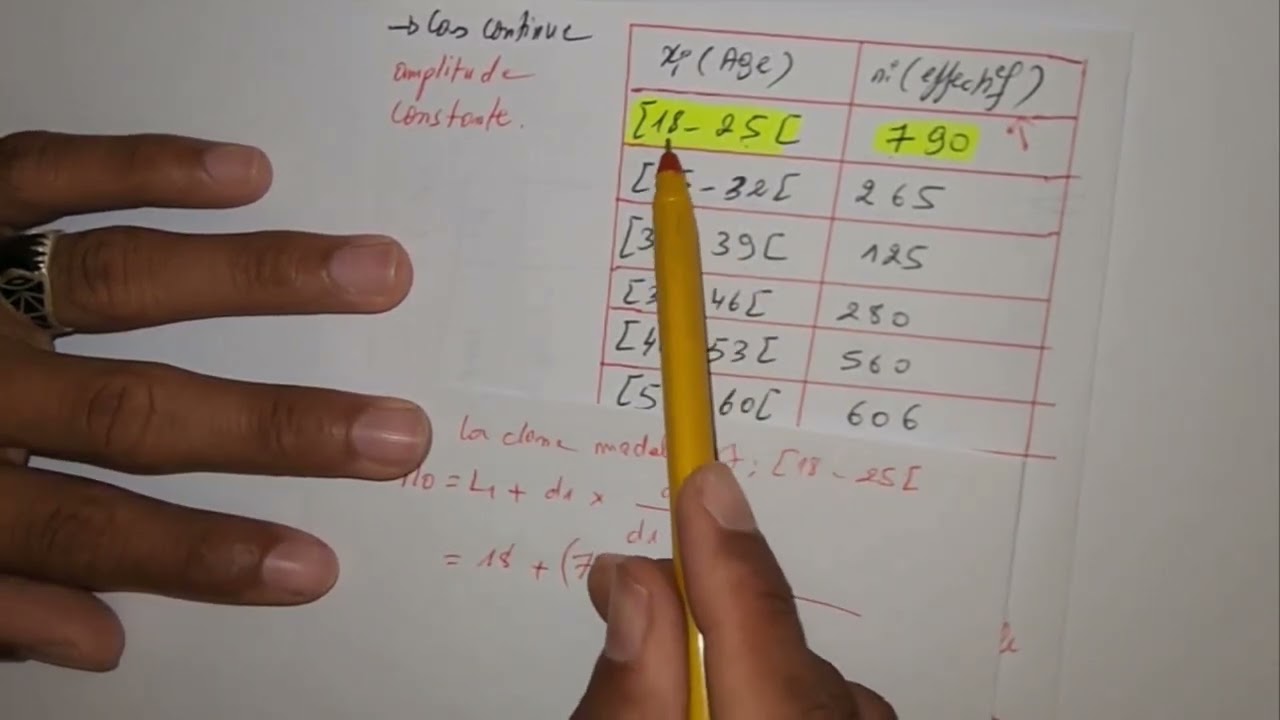 → Cas continue
amplitude
constante.
xi (Age) ni (effectif)
[18 - 25[ 790
- 32[ 265
39[ 125
46[ 280
53[ 560
60[ 606
la classe ; [18 - 25[
= L1 + d1 ×
d1
= 18 + (7